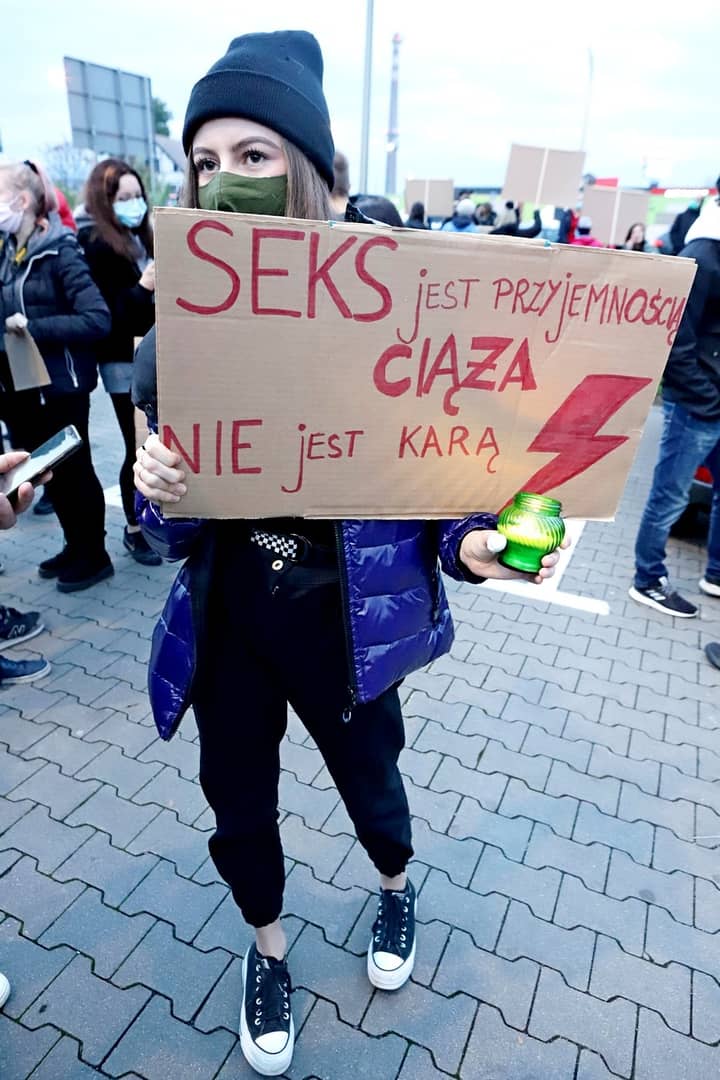 SEKS jEST PRZYjEMNOŚCIĄ
CIĄŻA
NIE jEST KARĄ